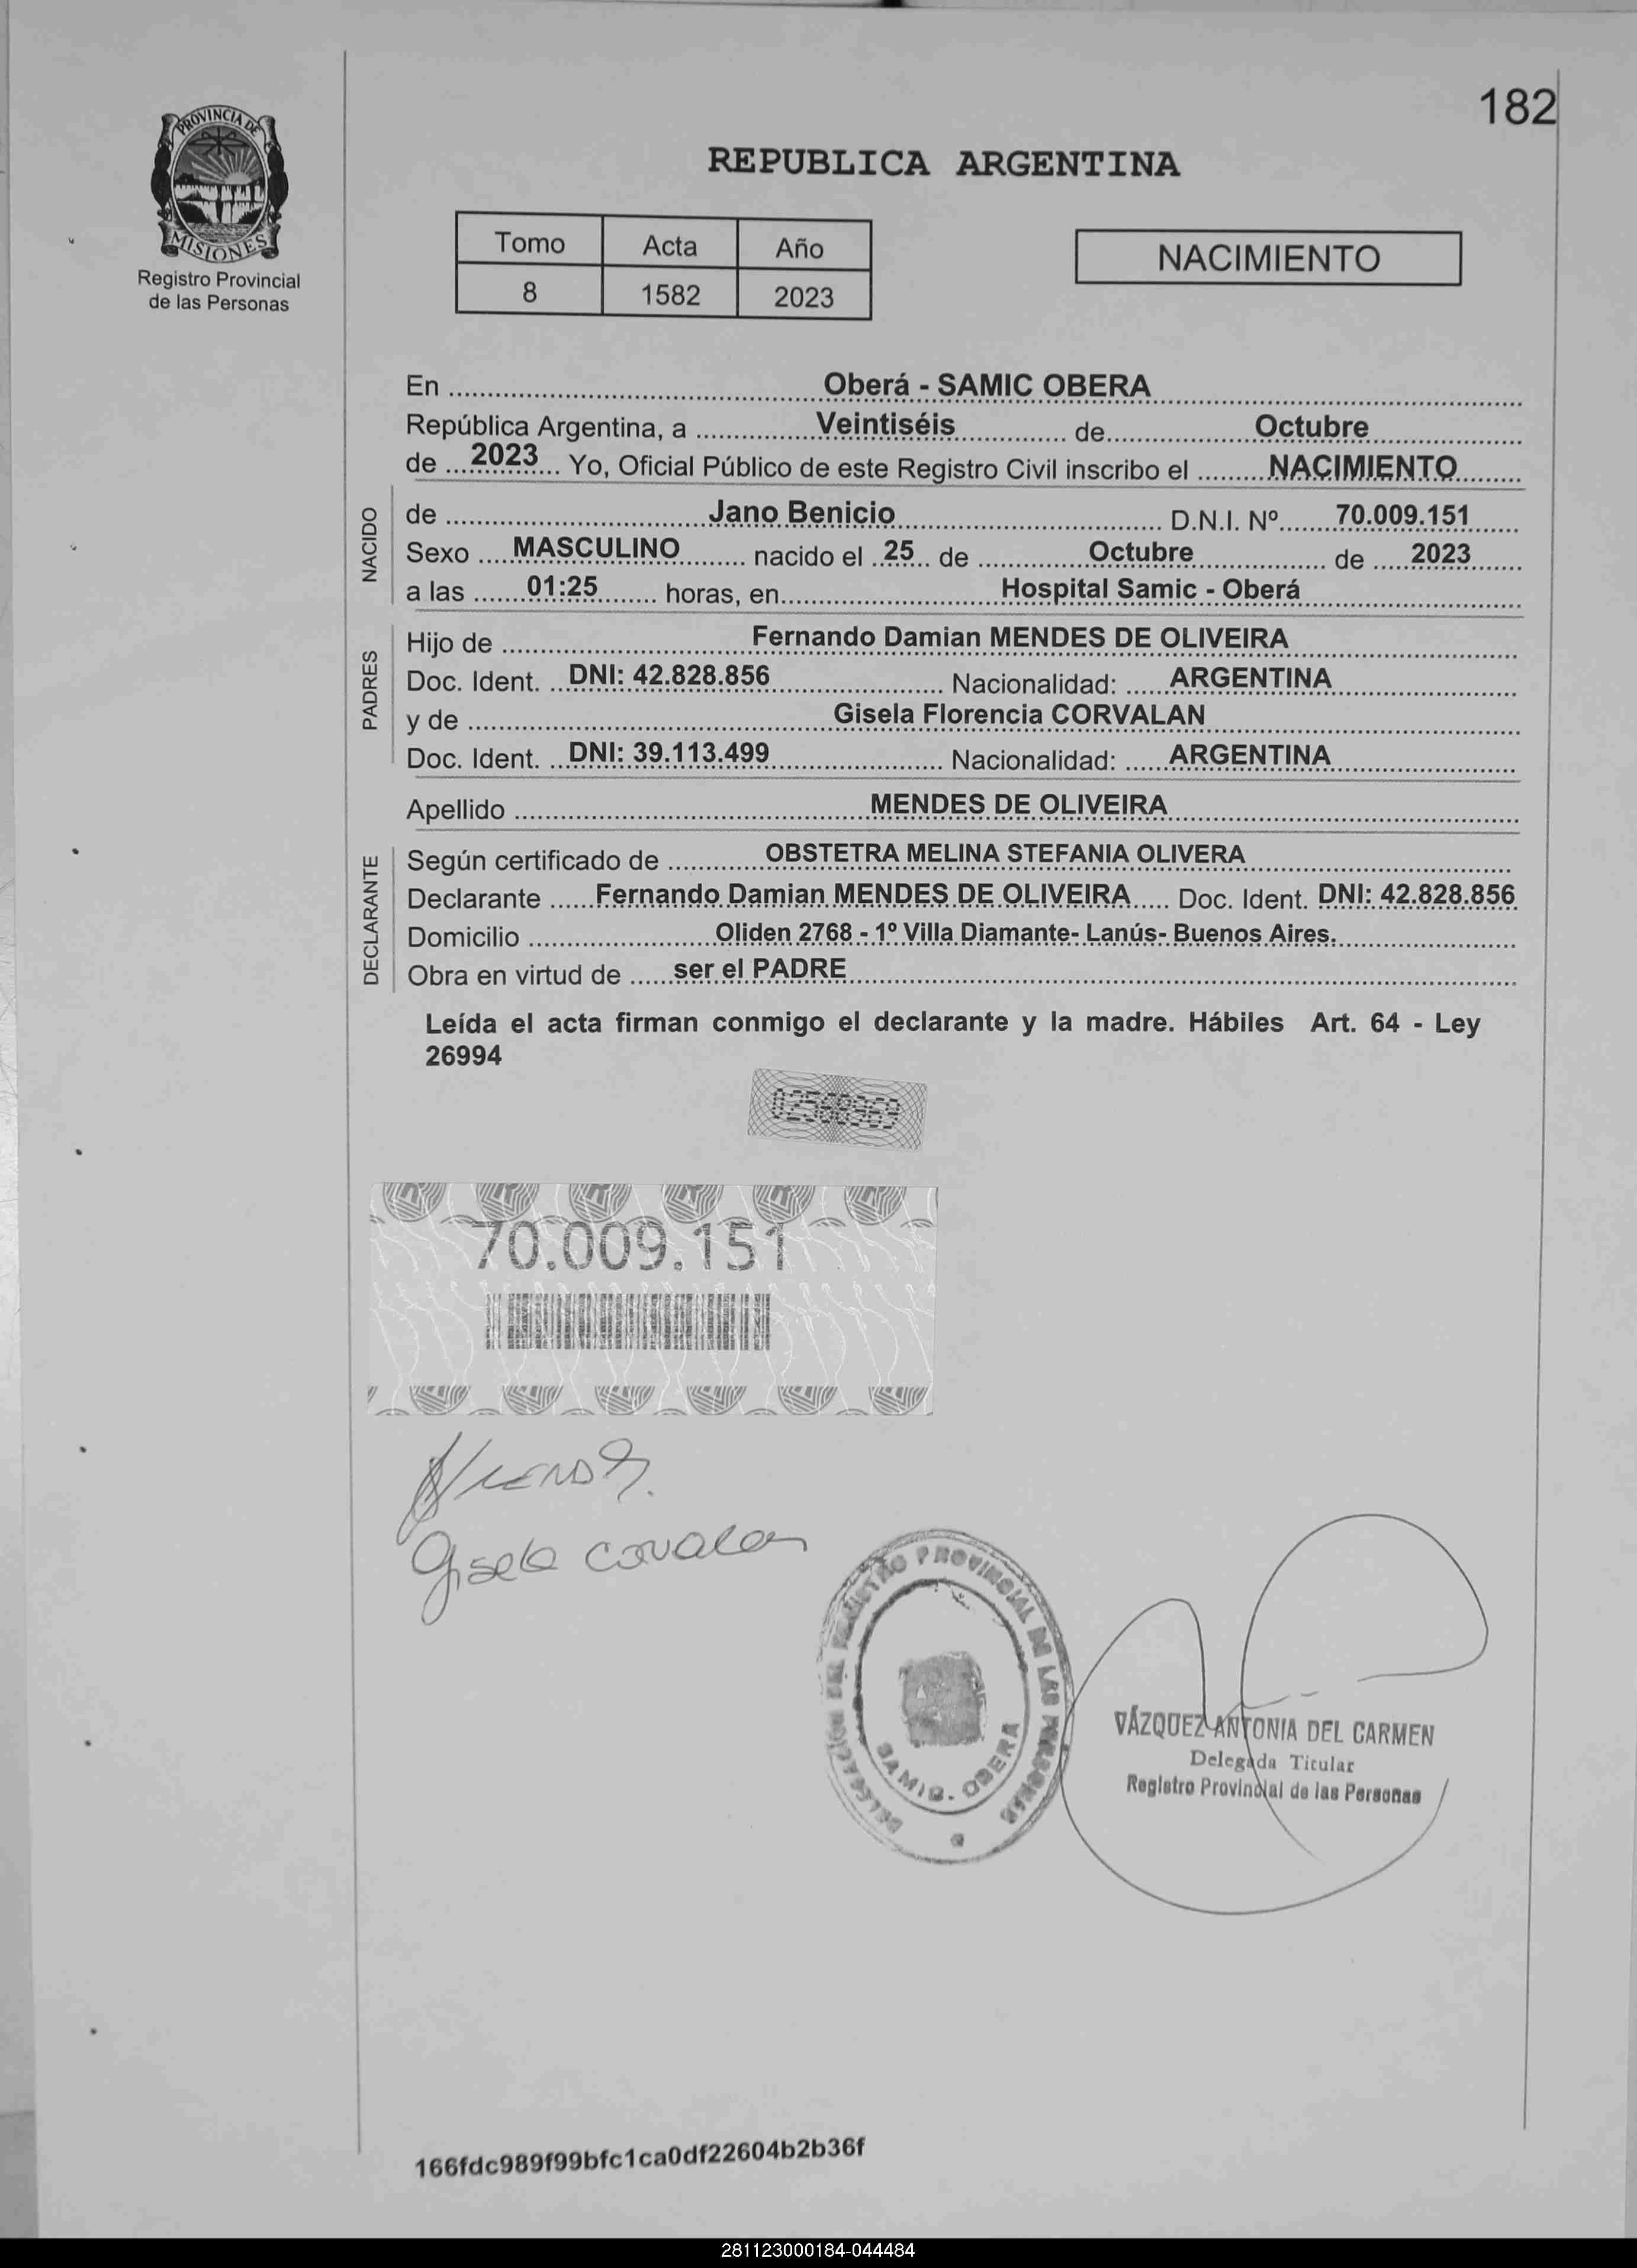 182
PROVINCIA DE
MISIONES
Registro Provincial
de las Personas
REPUBLICA ARGENTINA
Tomo Acta Año
8 1582 2023
NACIMIENTO
En Oberá - SAMIC OBERA
República Argentina, a Veintiséis de Octubre
de 2023 Yo, Oficial Público de este Registro Civil inscribo el NACIMIENTO
NACIDO
de Jano Benicio D.N.I. Nº 70.009.151
Sexo MASCULINO nacido el 25 de Octubre de 2023
a las 01:25 horas, en Hospital Samic - Oberá
PADRES
Hijo de Fernando Damian MENDES DE OLIVEIRA
Doc. Ident. DNI: 42.828.856 Nacionalidad: ARGENTINA
y de Gisela Florencia CORVALAN
Doc. Ident. DNI: 39.113.499 Nacionalidad: ARGENTINA
Apellido MENDES DE OLIVEIRA
DECLARANTE
Según certificado de OBSTETRA MELINA STEFANIA OLIVERA
Declarante Fernando Damian MENDES DE OLIVEIRA Doc. Ident. DNI: 42.828.856
Domicilio Oliden 2768 - 1º Villa Diamante- Lanús- Buenos Aires.
Obra en virtud de ser el PADRE
Leída el acta firman conmigo el declarante y la madre. Hábiles Art. 64 - Ley
26994
70.009.151
Gisela
DELEGACION DEL REGISTRO PROVINCIAL DE LAS PERSONAS
SAMIC - OBERA
VÁZQUEZ ANTONIA DEL CARMEN
Delegada Titular
Registro Provincial de las Personas
166fdc989f99bfc1ca0df22604b2b36f
281123000184-044484